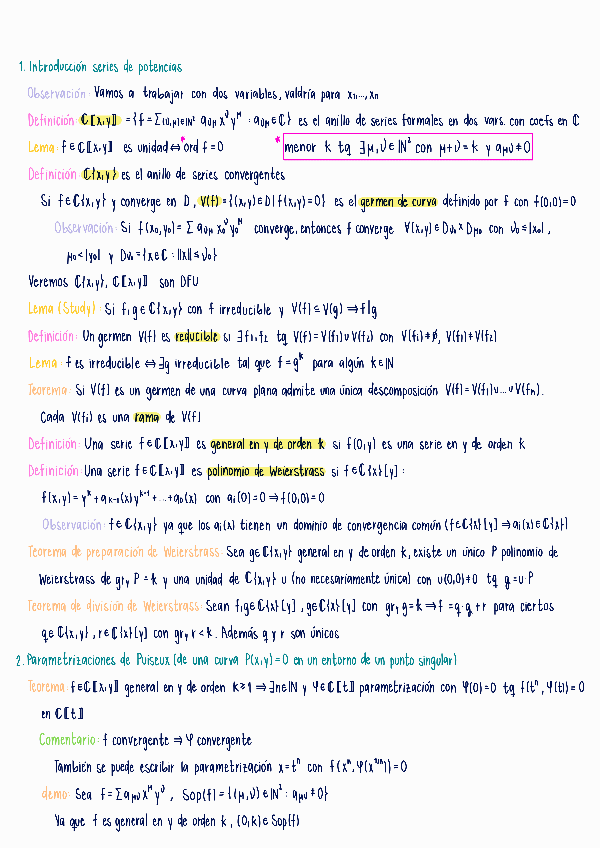 1. Introducción series de potencias
Observación: Vamos a trabajar con dos variables, valdría para x₁,...,xₙ
Definición: ℂ⟦x,y⟧ = {f = Σ(υ,μ)∈ℕ² aυμ x^υ y^μ : aυμ ∈ ℂ} es el anillo de series formales en dos vars. con coefs en ℂ
Lema: f ∈ ℂ⟦x,y⟧ es unidad ⇔ *ord f = 0 * menor k tq ∃μ,υ ∈ ℕ² con μ+υ = k y aμυ ≠ 0
Definición: ℂ{x,y} es el anillo de series convergentes
Si f ∈ ℂ{x,y} y converge en D, V(f) = {(x,y) ∈ D | f(x,y) = 0} es el germen de curva definido por f con f(0,0) = 0
Observación: Si f(x₀,y₀) = Σ aυμ x₀^υ y₀^μ converge, entonces f converge ∀(x,y) ∈ Dυ₀ × Dμ₀ con υ₀ ≤ |x₀|,
μ₀ < |y₀| y Dυ₀ = {x ∈ ℂ : ||x|| ≤ υ₀}
Veremos ℂ{x,y}, ℂ⟦x,y⟧ son DFU
Lema (Study): Si f,g ∈ ℂ{x,y} con f irreducible y V(f) ⊆ V(g) ⇒ f|g
Definición: Un germen V(f) es reducible si ∃f₁,f₂ tq V(f) = V(f₁) ∪ V(f₂) con V(fᵢ) ≠ ∅, V(f₁) ≠ V(f₂)
Lema: f es irreducible ⇔ ∃g irreducible tal que f = g^k para algún k ∈ ℕ
Teorema: Si V(f) es un germen de una curva plana admite una única descomposición V(f) = V(f₁) ∪ ... ∪ V(fₙ).
Cada V(fᵢ) es una rama de V(f)
Definición: Una serie f ∈ ℂ⟦x,y⟧ es general en y de orden k si f(0,y) es una serie en y de orden k
Definición: Una serie f ∈ ℂ⟦x,y⟧ es polinomio de Weierstrass si f ∈ ℂ{x}[y] :
f(x,y) = y^k + a_{k-1}(x)y^{k-1} + ... + a₀(x) con aᵢ(0) = 0 ⇒ f(0,0) = 0
Observación: f ∈ ℂ{x,y} ya que los aᵢ(x) tienen un dominio de convergencia común (f ∈ ℂ{x}[y] ⇒ aᵢ(x) ∈ ℂ{x})
Teorema de preparación de Weierstrass: Sea g ∈ ℂ{x,y} general en y de orden k, existe un único P polinomio de
Weierstrass de gr_y P = k y una unidad de ℂ{x,y} u (no necesariamente única) con u(0,0) ≠ 0 tq g = u·P
Teorema de división de Weierstrass: Sean f,g ∈ ℂ{x}[y], g ∈ ℂ{x}[y] con gr_y g = k ⇒ f = q·g + r para ciertos
q ∈ ℂ{x,y}, r ∈ ℂ{x}[y] con gr_y r < k. Además q y r son únicos
2. Parametrizaciones de Puiseux (de una curva P(x,y) = 0 en un entorno de un punto singular)
Teorema: f ∈ ℂ⟦x,y⟧ general en y de orden k ≥ 1 ⇒ ∃n ∈ ℕ y φ ∈ ℂ⟦t⟧ parametrización con φ(0) = 0 tq f(tⁿ, φ(t)) = 0
en ℂ⟦t⟧
Comentario: f convergente ⇒ φ convergente
También se puede escribir la parametrización x = tⁿ con f(xⁿ, φ(x^{1/n})) = 0
demo: Sea f = Σ aμυ x^μ y^υ, Sop(f) = {(μ,υ) ∈ ℕ² : aμυ ≠ 0}
Ya que f es general en y de orden k, (0,k) ∈ Sop(f)